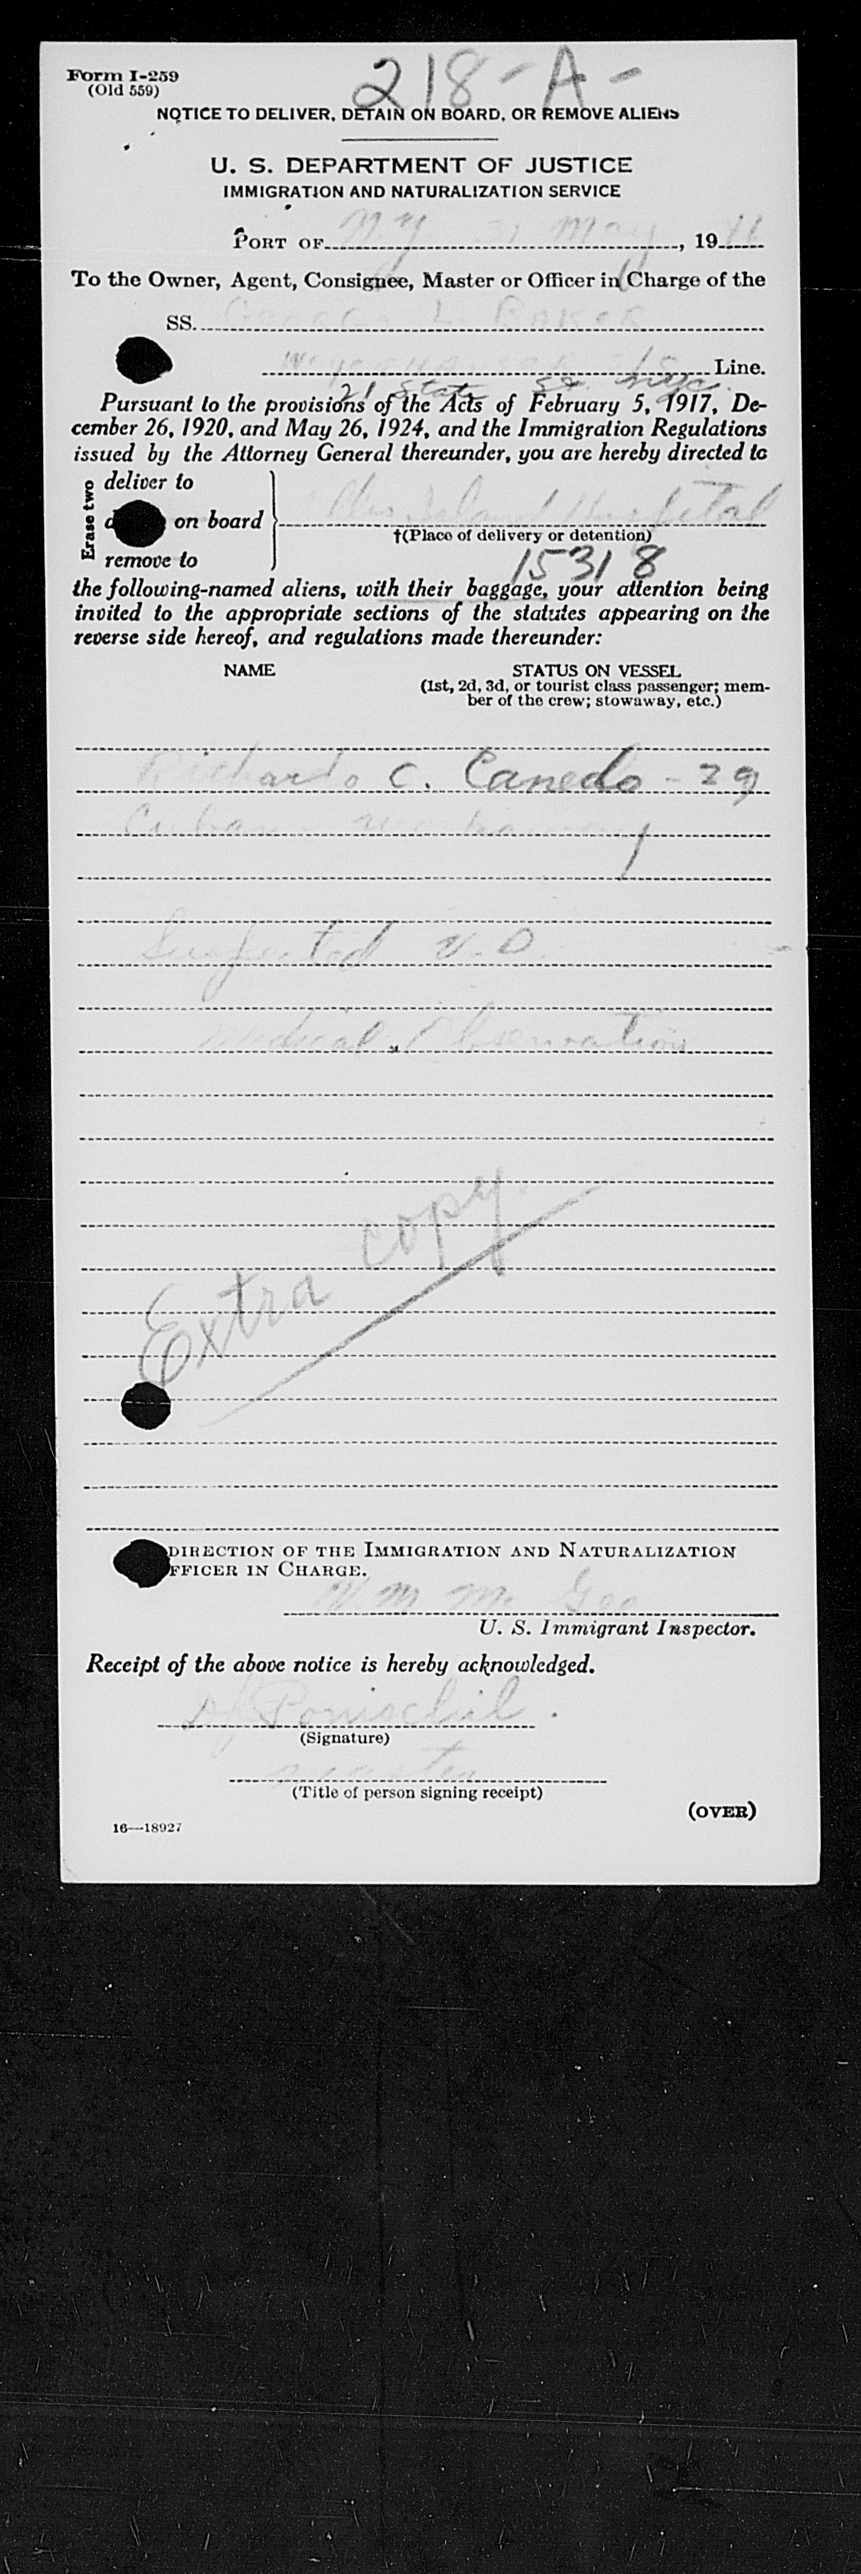 218-A-
Form I-259
(Old 559)
NOTICE TO DELIVER, DETAIN ON BOARD, OR REMOVE ALIENS
U. S. DEPARTMENT OF JUSTICE
IMMIGRATION AND NATURALIZATION SERVICE
PORT OF N.Y. 31 May, 19
To the Owner, Agent, Consignee, Master or Officer in Charge of the
SS. George L. Baker
Line.
21 State St. NYC.
Pursuant to the provisions of the Acts of February 5, 1917, De-
cember 26, 1920, and May 26, 1924, and the Immigration Regulations
issued by the Attorney General thereunder, you are hereby directed to
Erase two
deliver to
on board
remove to
Ellis Island Hospital
†(Place of delivery or detention)
15318
the following-named aliens, with their baggage, your attention being
invited to the appropriate sections of the statutes appearing on the
reverse side hereof, and regulations made thereunder:
NAME
STATUS ON VESSEL
(1st, 2d, 3d, or tourist class passenger; mem-
ber of the crew; stowaway, etc.)
Richardo C. Canedo - 29
Cuban
Suspected V.D.
Medical Observation
Extra copy
DIRECTION OF THE IMMIGRATION AND NATURALIZATION
FFICER IN CHARGE.
Mc Gee
U. S. Immigrant Inspector.
Receipt of the above notice is hereby acknowledged.
(Signature)
master
(Title of person signing receipt)
(OVER)
16—18927